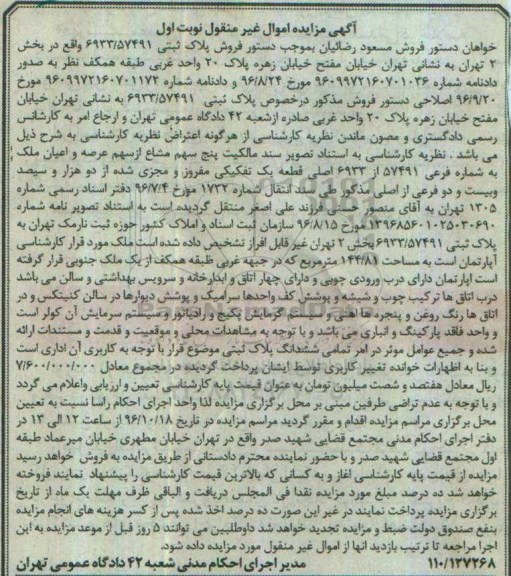 آگهی مزایده اموال غیر منقول نوبت اول
خواهان دستور فروش مسعود رضائیان بموجب دستور فروش پلاک ثبتی ۶۹۳۳/۵۷۴۹۱ واقع در بخش
۲ تهران به نشانی تهران خیابان مفتح خیابان زهره پلاک ۲۰ واحد غربی طبقه همکف نظر به صدور
دادنامه شماره ۹۶۰۹۹۷۲۱۶۰۷۰۱۰۳۶ مورخ ۹۶/۸/۲۴ و دادنامه شماره ۹۶۰۹۹۷۲۱۶۰۷۰۱۱۷۲ مورخ
۹۶/۹/۲۰ اصلاحی دستور فروش مذکور درخصوص پلاک ثبتی ۶۹۳۳/۵۷۴۹۱ به نشانی تهران خیابان
مفتح خیابان زهره پلاک ۲۰ واحد غربی صادره ازشعبه ۴۲ دادگاه عمومی تهران و ارجاع امر به کارشناس
رسمی دادگستری و مصون ماندن نظریه کارشناسی از هرگونه اعتراض نظریه کارشناسی به شرح ذیل
می باشد . نظریه کارشناسی به استناد تصویر سند مالکیت پنج سهم مشاع ازسهم عرصه و اعیان ملک
به شماره فرعی ۵۷۴۹۱ از ۶۹۳۳ اصلی قطعه یک تفکیکی مفروز و مجزی شده از دو هزار و سیصد
وبیست و دو فرعی از اصلی مذکور طی سند انتقال شماره ۱۷۳۲ مورخ ۹۶/۷/۴ دفتر اسناد رسمی شماره
۱۳۰۵ تهران به آقای منصور حسنی فرزند علی اصغر منتقل گردیده است به استناد تصویر نامه شماره
۱۳۹۶۸۵۶۰۱۰۲۵۰۳۰۶۹۰ مورخ ۹۶/۸/۱۵ سازمان ثبت اسناد و املاک کشور حوزه ثبت نارمک تهران به
پلاک ثبتی ۶۹۳۳/۵۷۴۹۱ بخش ۲ تهران غیر قابل افراز تشخیص داده شده است ملک مورد قرار کارشناسی
آپارتمان است به مساحت ۱۴۴/۸۱ مترمربع که در جبهه غربی طبقه همکف از یک ملک جنوبی قرار گرفته
است اپارتمان دارای درب ورودی چوبی و دارای چهار اتاق و ابدارخانه و سرویس بهداشتی و سالن می باشد
درب اتاق ها ترکیب چوب و شیشه و پوشش کف واحدها سرامیک و پوشش دیوارها در سالن کنیتکس و در
اتاق ها رنگ روغن و پنجره ها آهنی و سیستم گرمایش پکیج و رادیاتور و سیستم سرمایش آن کولر است
و واحد فاقد پارکینگ و انباری می باشد و با توجه به مشاهدات محلی و موقعیت و قدمت و مستندات ارائه
شده و جمیع عوامل موثر در امر تمامی ششدانگ پلاک ثبتی موضوع قرار با توجه به کاربری آن اداری است
و بنا به اظهارات خوانده تغییر کاربری توسط ایشان پرداخت گردیده در مجموع معادل ۷/۶۰۰/۰۰۰/۰۰۰
ریال معادل هفتصد و شصت میلیون تومان به عنوان قیمت پایه کارشناسی تعیین و ارزیابی واعلام می گردد
و با توجه به عدم تراضی طرفین مبنی بر محل برگزاری مزایده لذا واحد اجرای احکام راسا نسبت به تعیین
محل برگزاری مراسم مزایده اقدام و مقرر گردید مراسم مزایده در تاریخ ۹۶/۱۰/۱۸ از ساعت ۱۲ الی ۱۳ در
دفتر اجرای احکام مدنی مجتمع قضایی شهید صدر واقع در تهران خیابان مطهری خیابان میرعماد طبقه
اول مجتمع قضایی شهید صدر و با حضور نماینده محترم دادستانی از طریق مزایده به فروش خواهد رسید
مزایده از قیمت پایه کارشناسی اغاز و به کسانی که بالاترین قیمت کارشناسی را پیشنهاد نمایند فروخته
خواهد شد ده درصد مبلغ مورد مزایده نقدا فی المجلس دریافت و الباقی ظرف مهلت یک ماه از تاریخ
برگزاری مزایده پرداخت نمایند در غیر این صورت ده درصد اخذ شده پس از کسر هزینه های انجام مزایده
بنفع صندوق دولت ضبط و مزایده تجدید خواهد شد داوطلبین می توانند ۵ روز قبل از موعد مزایده به این
اجرا مراجعه تا ترتیب بازدید انها از اموال غیر منقول مورد مزایده داده شود.
۱۱۰/۱۲۷۲۶۸ مدیر اجرای احکام مدنی شعبه ۴۲ دادگاه عمومی تهران